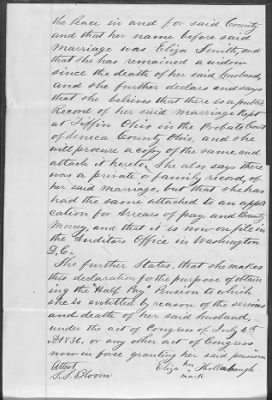 the Peace in and for said County
and that her name before said
marriage was Eliza Smith, and
that she has remained a widow
since the death of her said husband,
and she further declars and says
that she believes that there is a public
Record of her said marriage kept
at Tiffin Ohio in the Probate Court
of Seneca County Ohio, and she
will procure a copy of the same and
attach it hereto. She also says there
was a private or family record, of
her said marriage, but that she has
had the same attached to an appli
cation for Arrears of pay and Bounty
Money, and that it is now on file in
the Auditors Office in Washington
D.C.
The further States, that she makes
this declaration for the purpose of obtain
ing the "Half Pay" Pension to which
she is entitled by reason of the services
and death of her said husband,
under the act of Congress of July 4th
1836, or any other act of Congress
now in force granting her said pension
Attest her
Eliza Shollabough
S. S. Bloom mark